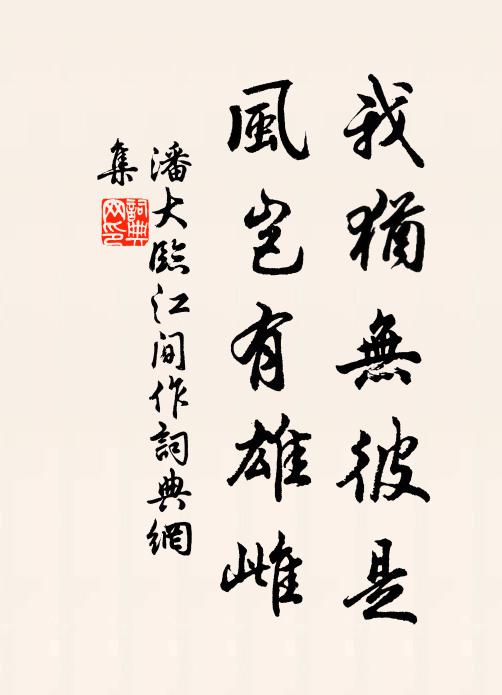 我猶無彼是
風豈有雄雌
潘大臨江間作詞典網
集
詞典
网印